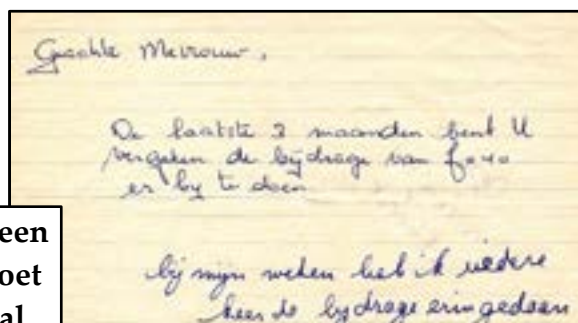 Geachte Mevrouw,
De laatste 3 maanden bent U
vergeten de bijdrage van
er by te doen
bij mijn weten heb ik iedere
keer de bydrage erin gedaan
een
oet
al